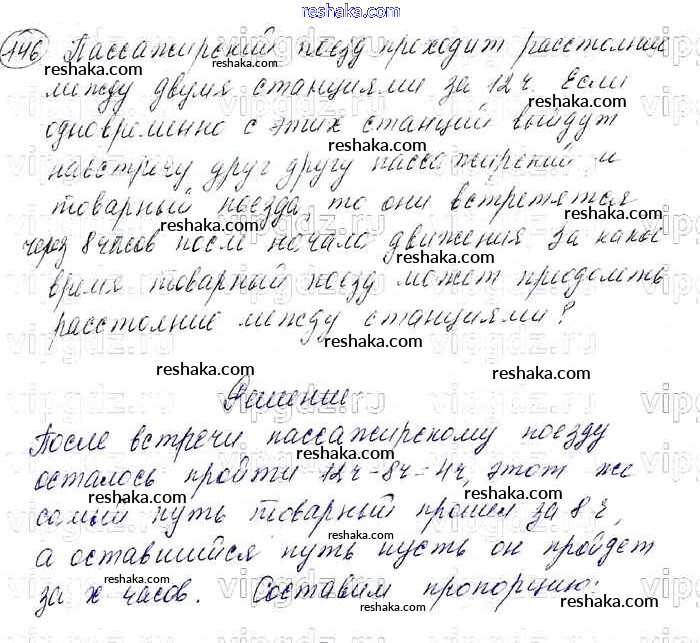 reshaka.ru
146 Пассажирский поезд проходит расстояние
между двумя станциями за 12 ч. Если
одновременно с этих станций выйдут
навстречу друг другу пассажирский и
товарный поезда, то они встретятся
через 8 часов после начала движения. За какое
время товарный поезд может приодолеть
расстояние между станциями?
Решение
После встречи пассажирскому поезду
осталось пройти 12ч-8ч=4ч, этот же
самый путь товарный прошел за 8 ч,
а оставшийся путь пусть он пройдет
за x часов. Составим пропорцию: